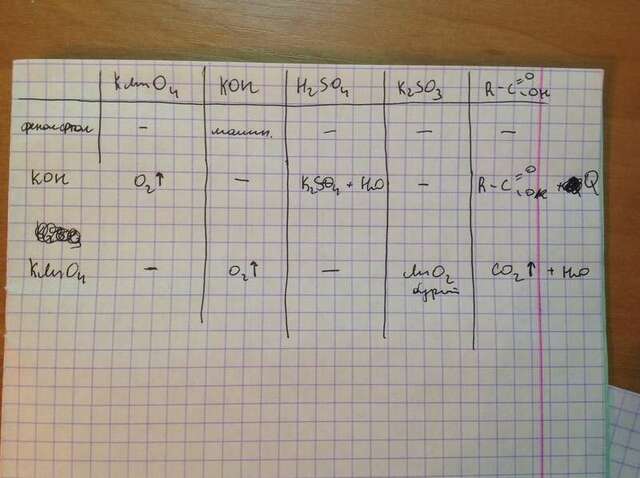 KMnO4 KOH H2SO4 K2SO3 R-C=O-OH
фенолфтал — малин. — — —
KOH O2↑ — K2SO4 + H2O — R-C=O-OK + Q
KMnO4 — O2↑ — MnO2 бурый CO2↑ + H2O